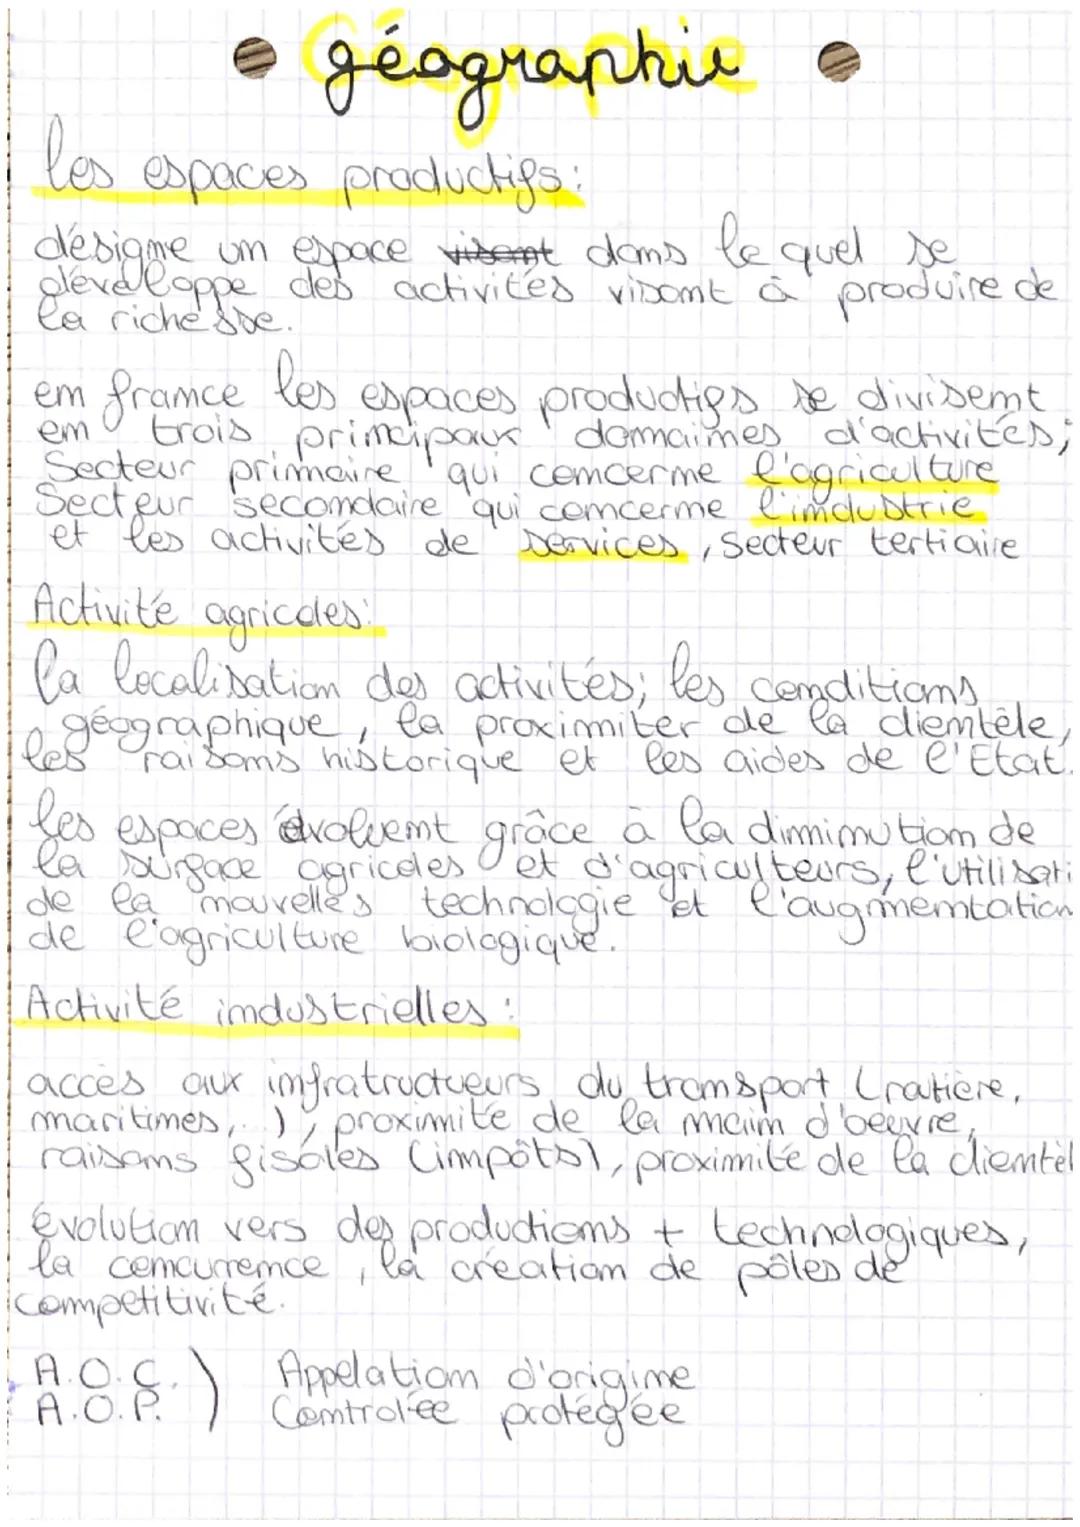 géographie
les espaces productifs:
désigne un espace visant dans le quel se
développe des activités visant à produire de
la richesse.
en france les espaces productifs se divisent
en trois principaux domaines d'activités;
Secteur primaire qui concerne l'agriculture
Secteur secondaire qui concerne l'industrie
et les activités de services, secteur tertiaire
Activité agricoles:
la localisation des activités; les conditions
géographique, la proximiter de la clientèle,
les raisons historique et les aides de l'Etat.
les espaces évoluent grâce à la diminution de
la surface agricoles et d'agriculteurs, l'utilisati
de la nouvelles technologie et l'augmentation
de l'agriculture biologique.
Activité industrielles:
accès aux infratructueurs du transport (ratière,
maritimes,..), proximité de la main d'oeuvre,
raisons fisales (impôts), proximité de la clientèl
évolution vers des productions + technologiques,
la concurrence, la création de pôles de
compétitivité.
A.O.C. ) Appelation d'origine
A.O.P. ) Controlée protégée